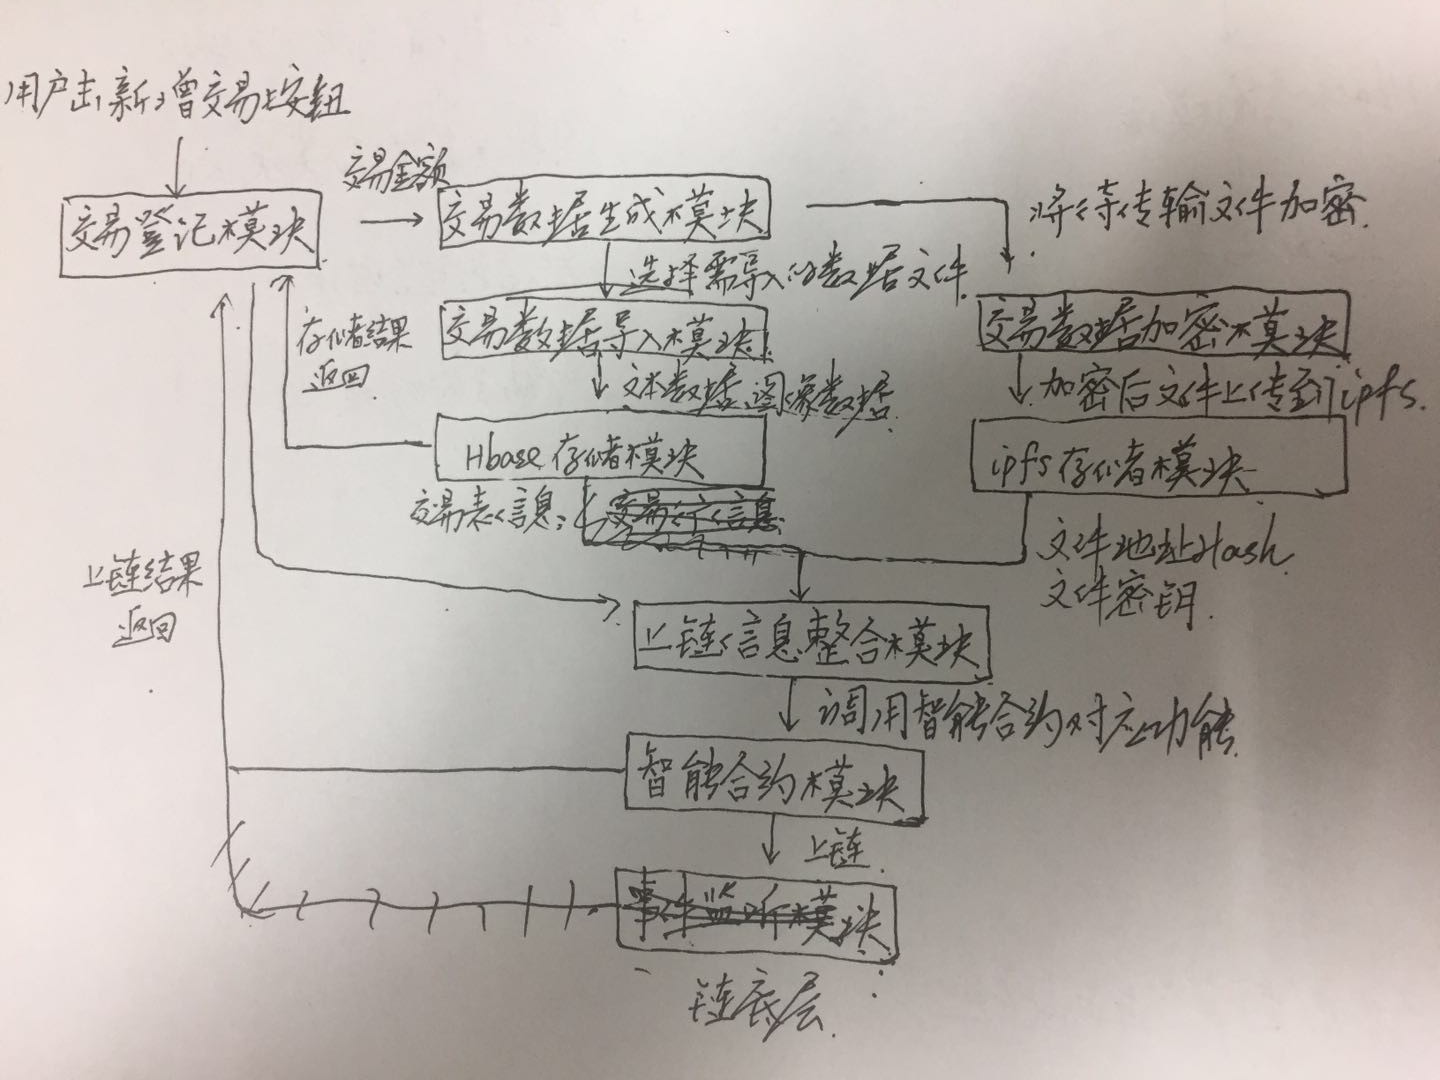 用户击新增交易按钮
交易金额
交易登记模块
交易数据生成模块
将待传输文件加密.
选择需导入的数据文件
存储结果
返回
交易数据导入模块
交易数据加密模块
文本数据、图像数据
加密后文件上传到ipfs.
Hbase存储模块
ipfs存储模块
交易表信息:
交易行信息
文件地址Hash
文件密钥
上链结果
返回
上链信息整合模块
调用智能合约对应功能
智能合约模块
上链
事件监听模块
链底层